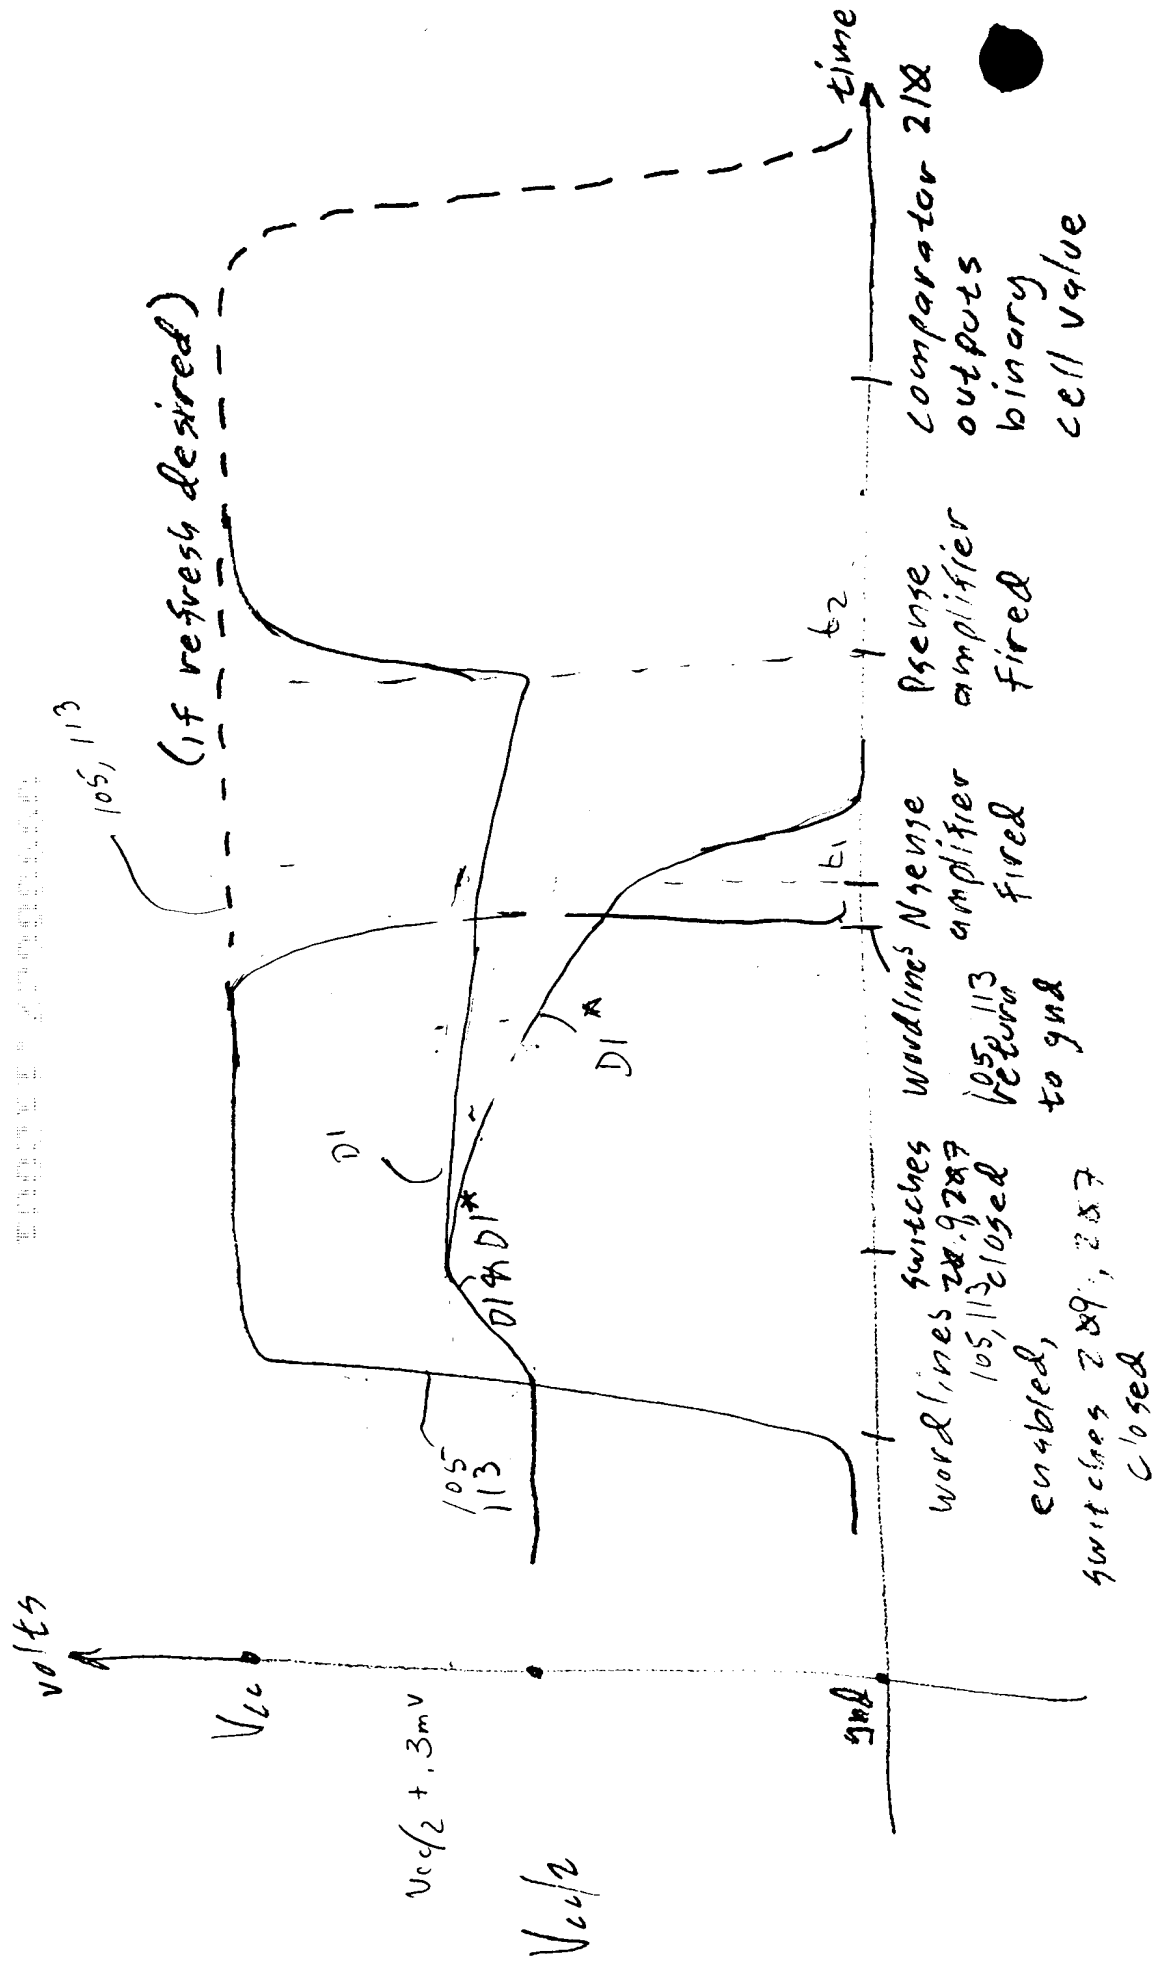 volts
Vcc
Vcc/2 + .3mV
Vcc/2
gnd
105
113
D1 & D1*
D1
D1*
105, 113
(if refresh desired)
t1
t2
time
wordlines
105, 113
enabled,
switches 209, 207
closed
switches
209, 207
closed
wordlines
105, 113
return
to gnd
Nsense
amplifier
fired
Psense
amplifier
fired
comparator 210
outputs
binary
cell value